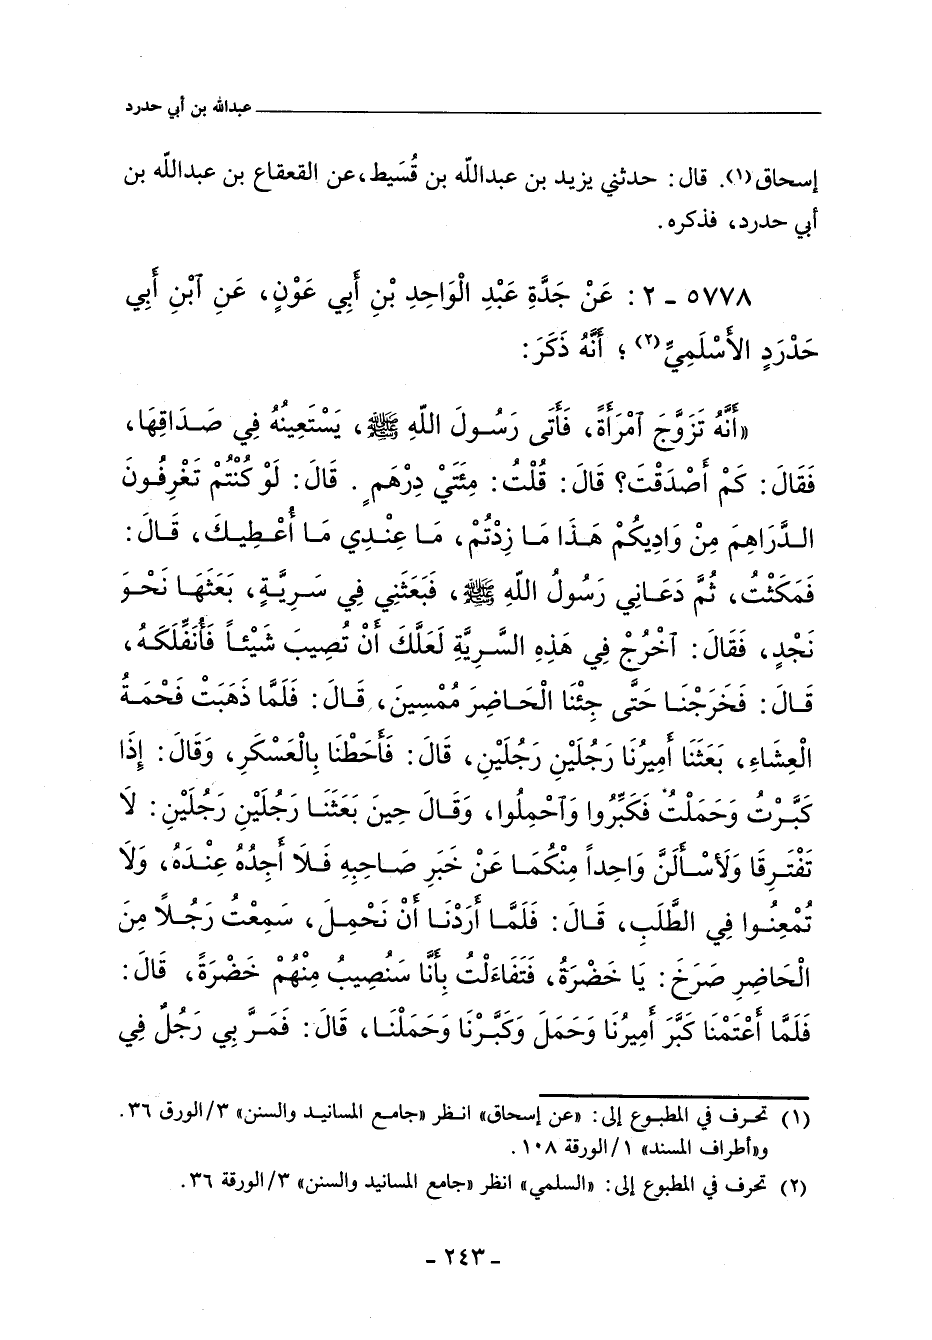 عبدالله بن أبي حدرد
إسحاق(١). قال: حدثني يزيد بن عبدالله بن قُسَيط، عن القعقاع بن عبدالله بن
أبي حدرد، فذكره.
٥٧٧٨ - ٢ : عَنْ جَدَّةِ عَبْدِ الْوَاحِدِ بْنِ أَبِي عَوْنٍ، عَنِ ٱبْنِ أَبِي
حَدْرَدٍ الأَسْلَمِيِّ(٢) ؛ أَنَّهُ ذَكَرَ:
«أَنَّهُ تَزَوَّجَ ٱمْرَأَةً، فَأَتَى رَسُولَ اللّهِ ﷺ، يَسْتَعِينُهُ فِي صَدَاقِهَا،
فَقَالَ: كَمْ أَصْدَقْتَ؟ قَالَ: قُلْتُ: مِئَتَيْ دِرْهَمٍ. قَالَ: لَوْ كُنْتُمْ تَغْرِفُونَ
الدَّرَاهِمَ مِنْ وَادِيكُمْ هَذَا مَا زِدْتُمْ، مَا عِنْدِي مَا أُعْطِيكَ، قَالَ:
فَمَكَثْتُ، ثُمَّ دَعَانِي رَسُولُ اللّهِ ﷺ، فَبَعَثَنِي فِي سَرِيَّةٍ، بَعَثَهَا نَحْوَ
نَجْدٍ، فَقَالَ: ٱخْرُجْ فِي هَذِهِ السَّرِيَّةِ لَعَلَّكَ أَنْ تُصِيبَ شَيْئاً فَأُنَفِّلَكَهُ،
قَالَ: فَخَرَجْنَا حَتَّى جِئْنَا الْحَاضِرَ مُمْسِينَ، قَالَ: فَلَمَّا ذَهَبَتْ فَحْمَةُ
الْعِشَاءِ، بَعَثَنَا أَمِيرُنَا رَجُلَيْنِ رَجُلَيْنِ، قَالَ: فَأَحَطْنَا بِالْعَسْكَرِ، وَقَالَ: إِذَا
كَبَّرْتُ وَحَمَلْتُ فَكَبِّرُوا وَٱحْمِلُوا، وَقَالَ حِينَ بَعَثَنَا رَجُلَيْنِ رَجُلَيْنِ: لَا
تَفْتَرِقَا وَلَأَسْأَلَنَّ وَاحِداً مِنْكُمَا عَنْ خَبَرِ صَاحِبِهِ فَلَا أَجِدُهُ عِنْدَهُ، وَلَا
تُمْعِنُوا فِي الطَّلَبِ، قَالَ: فَلَمَّا أَرَدْنَا أَنْ نَحْمِلَ، سَمِعْتُ رَجُلاً مِنَ
الْحَاضِرِ صَرَخَ: يَا خَضْرَةُ، فَتَفَاءَلْتُ بِأَنَّا سَنُصِيبُ مِنْهُمْ خَضْرَةً، قَالَ:
فَلَمَّا أَعْتَمْنَا كَبَّرَ أَمِيرُنَا وَحَمَلَ وَكَبَّرْنَا وَحَمَلْنَا، قَالَ: فَمَرَّ بِي رَجُلٌ فِي
(١) تحرف في المطبوع إلى: «عن إسحاق» انظر «جامع المسانيد والسنن» ٣/الورق ٣٦.
و«أطراف المسند» ١/الورقة ١٠٨.
(٢) تحرف في المطبوع إلى: «السلمي» انظر «جامع المسانيد والسنن» ٣/الورقة ٣٦.
- ٢٤٣ -